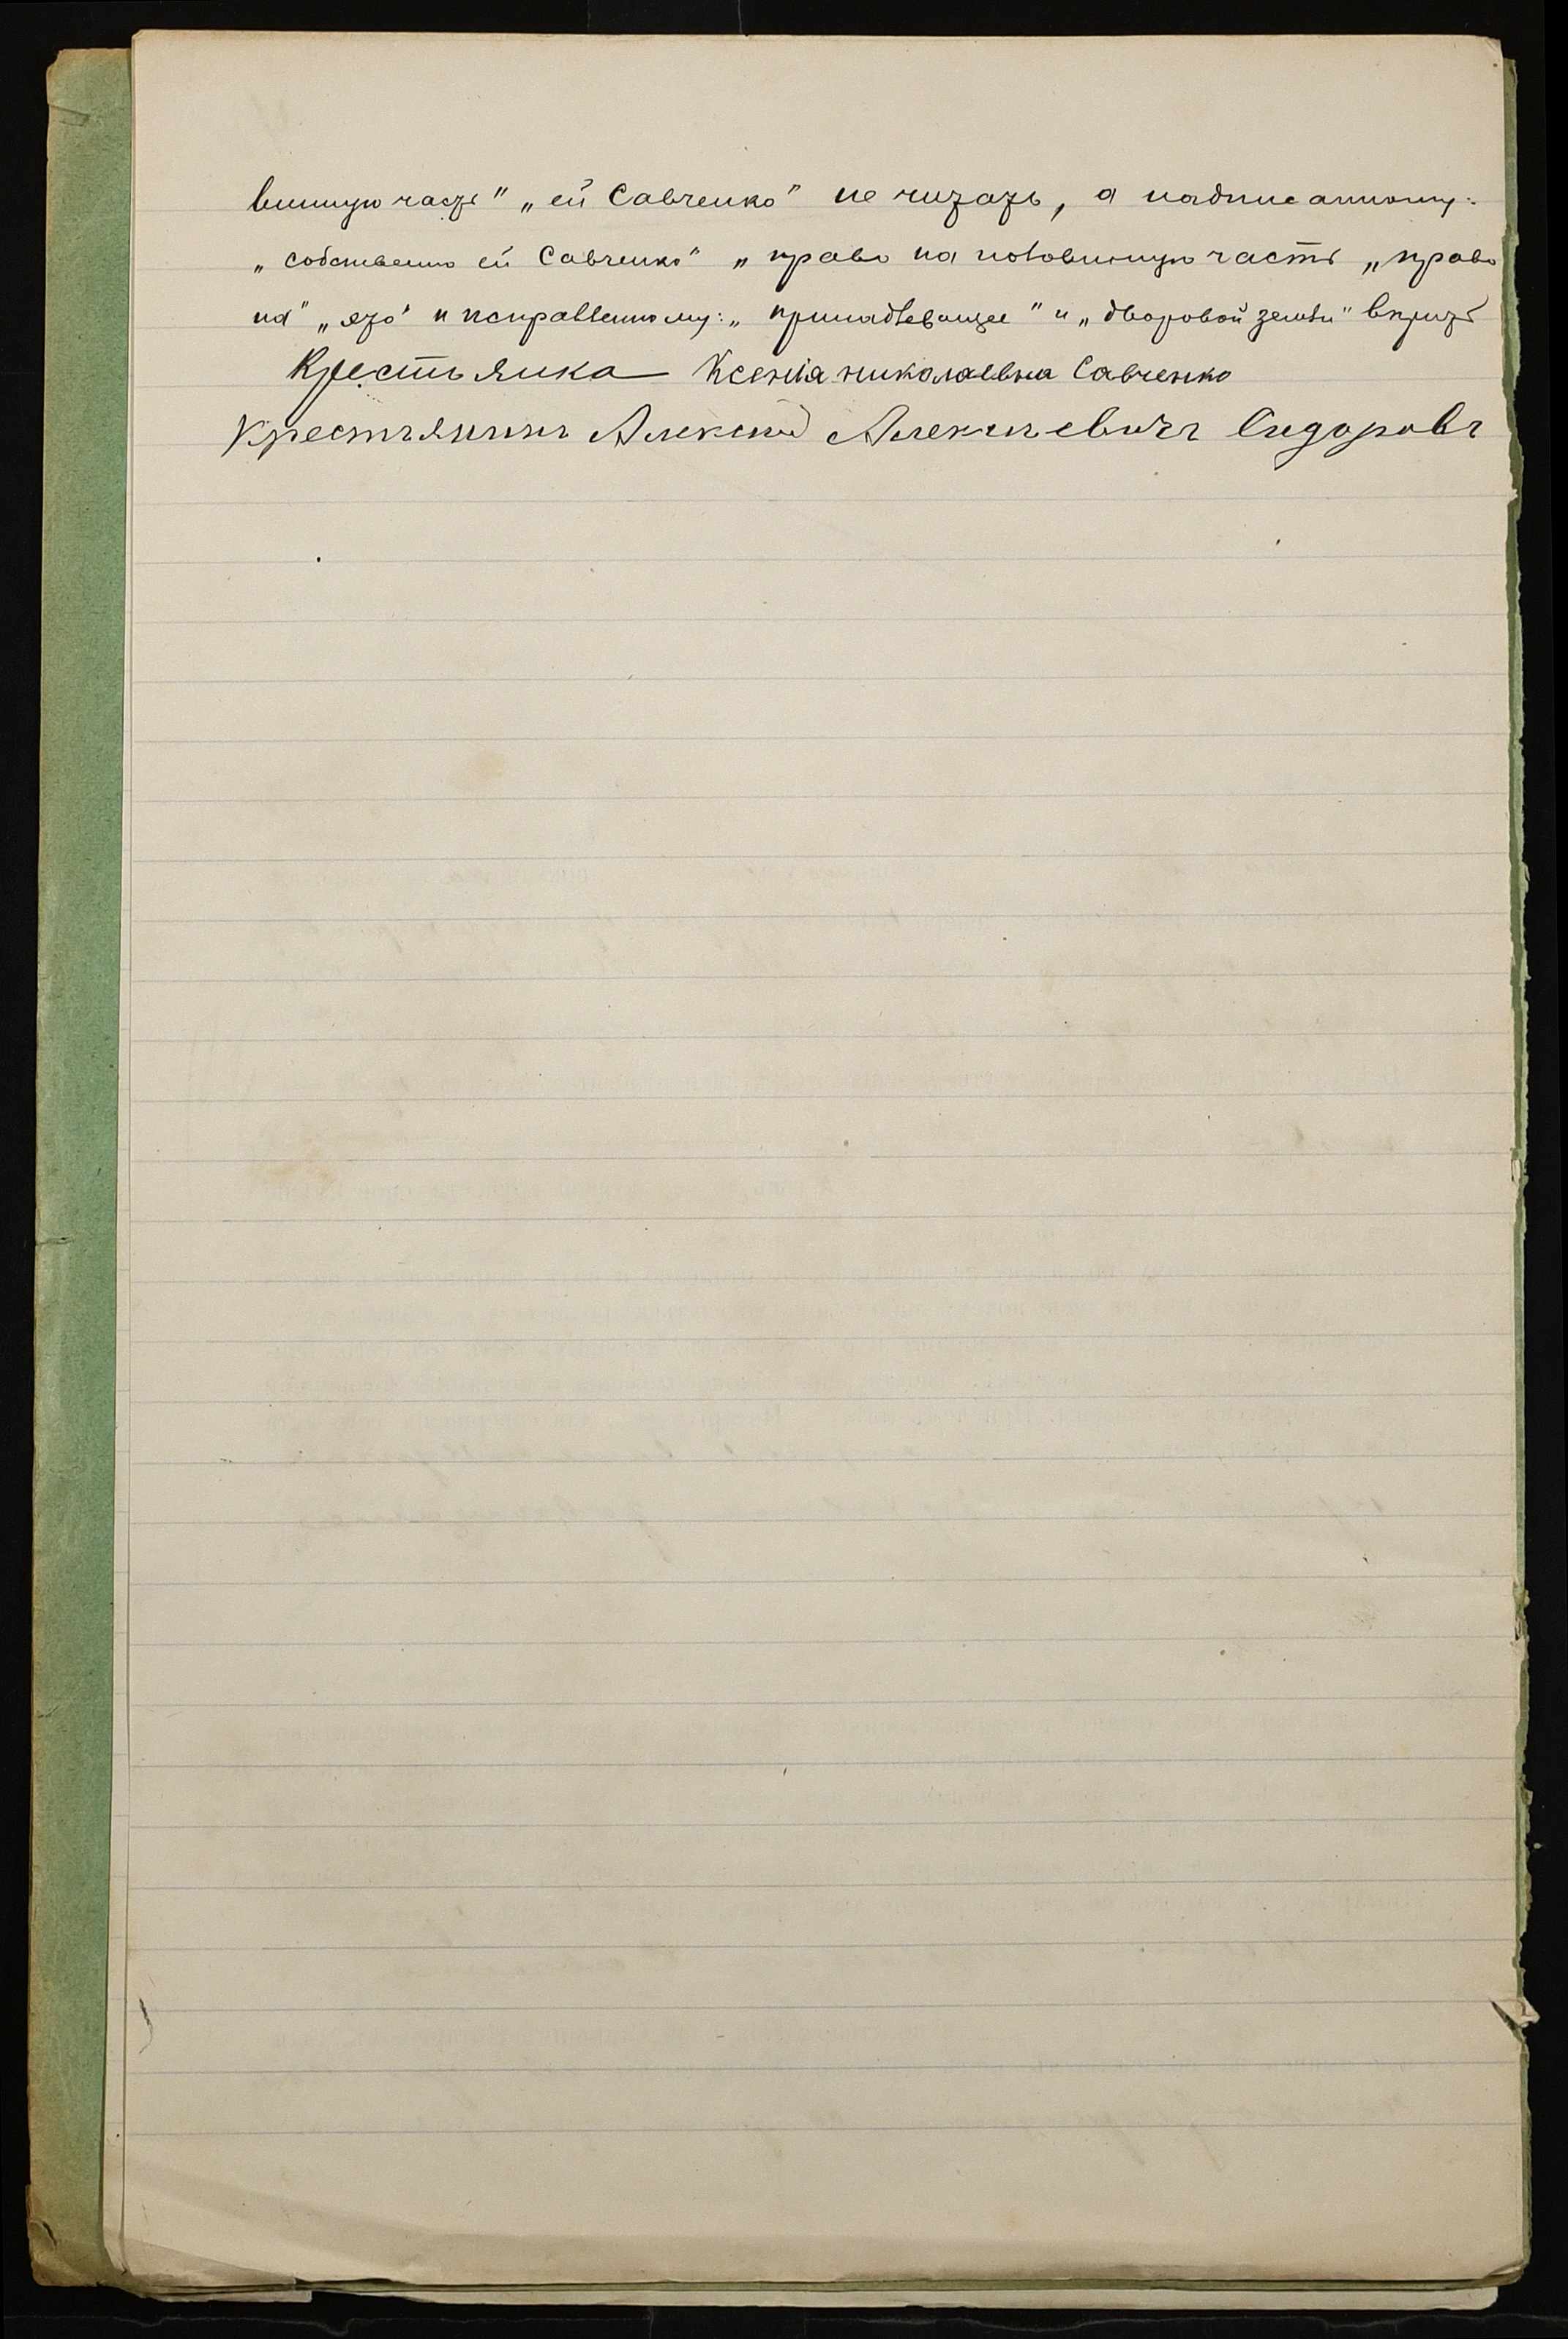 винную часть" „ей Савченко" не читать, а надписанному:
„собственно ей Савченко" „право на половинную часть „право
на" „это" и исправленному: „принадлежащее" и „дворовой земли" верить
Крестьянка Ксенія николаевна Савченко
Крестьянинъ Алексей Алексеевичъ Сидоровъ